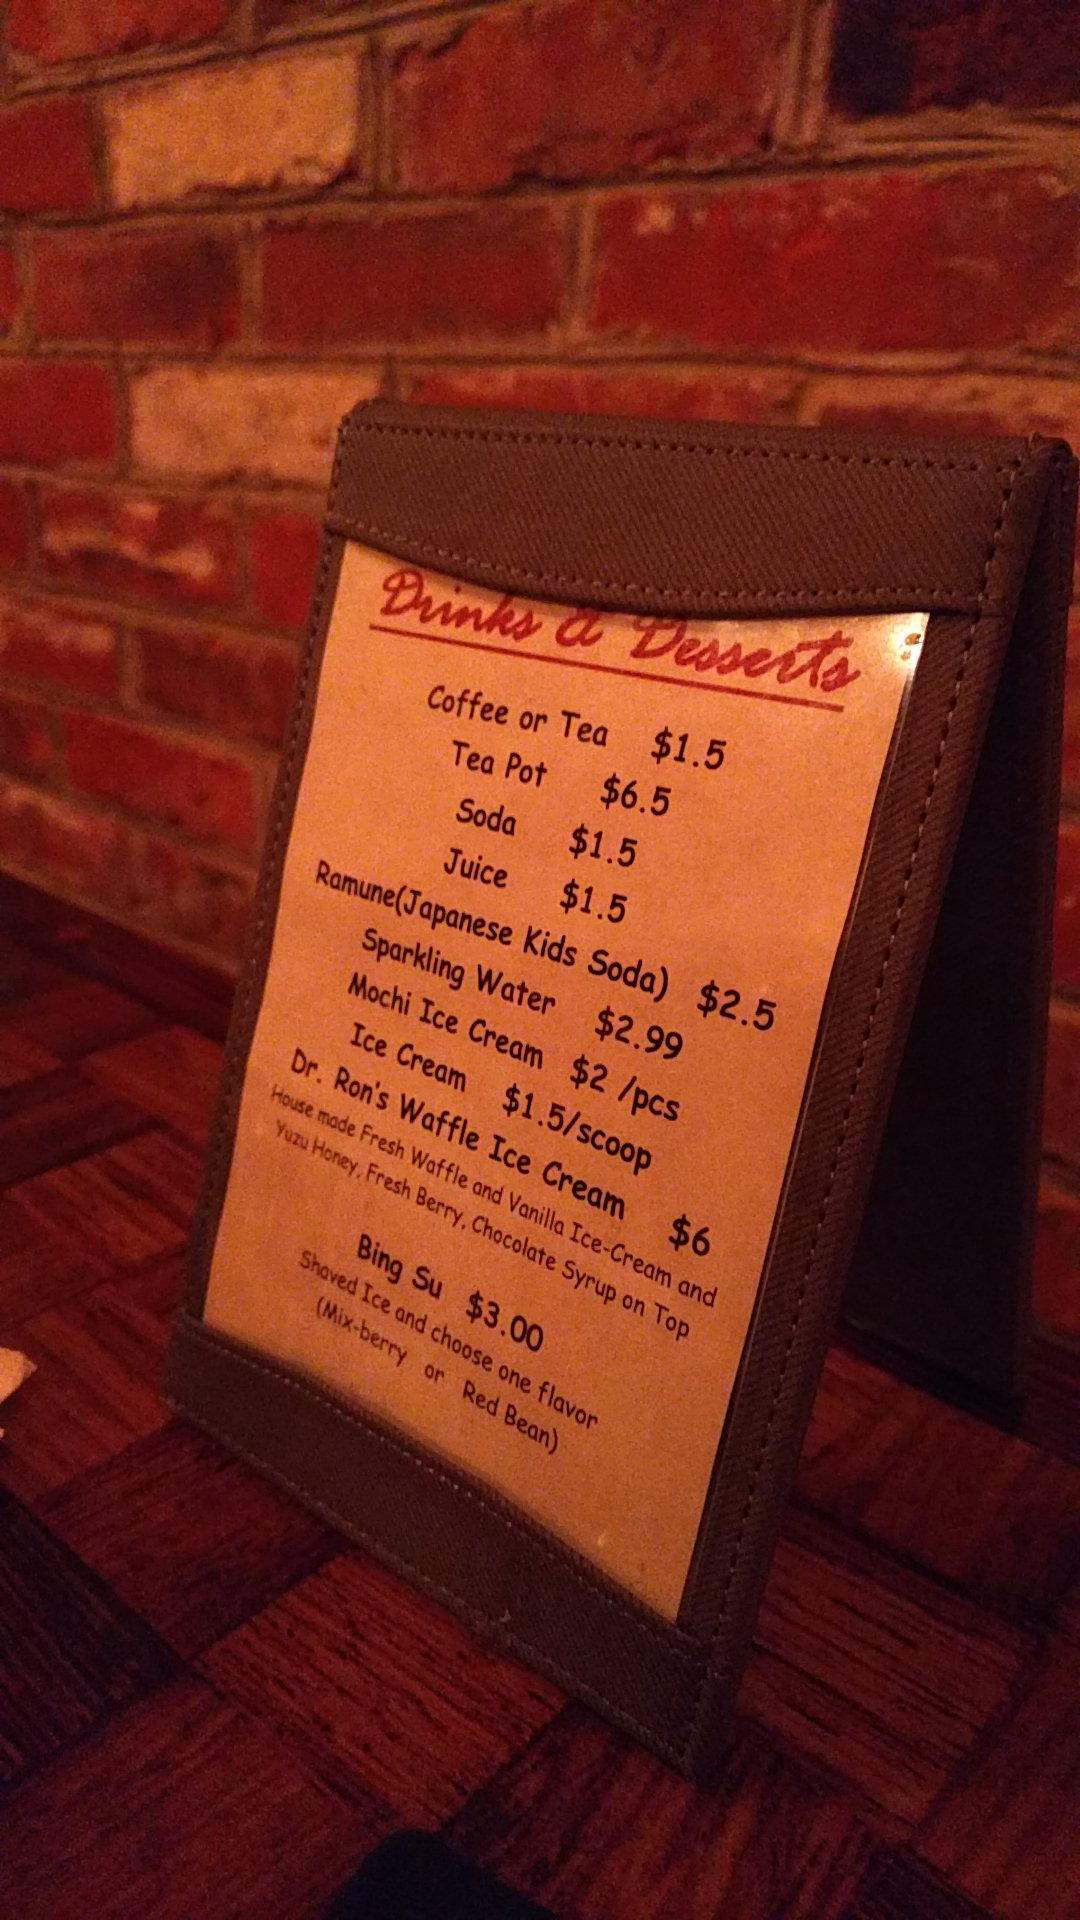 Drinks & Desserts
Coffee or Tea $1.5
Tea Pot $6.5
Soda $1.5
Juice $1.5
Ramune(Japanese Kids Soda) $2.5
Sparkling Water $2.99
Mochi Ice Cream $2 /pcs
Ice Cream $1.5/scoop
Dr. Ron's Waffle Ice Cream $6
House made Fresh Waffle and Vanilla Ice-Cream and
Yuzu Honey, Fresh Berry, Chocolate Syrup on Top
Bing Su $3.00
Shaved Ice and choose one flavor
(Mix-berry or Red Bean)